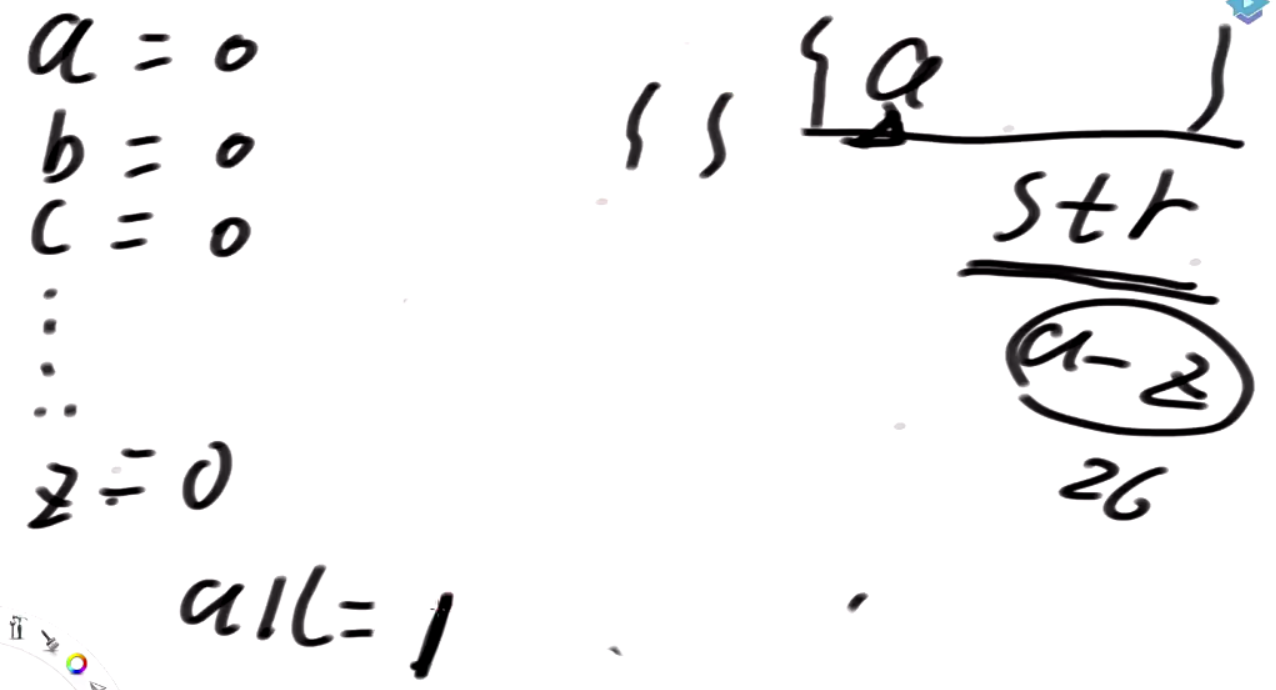 a = 0
b = 0
c = 0
z = 0
all = 1
{ }
{ a }
str
a-z
26